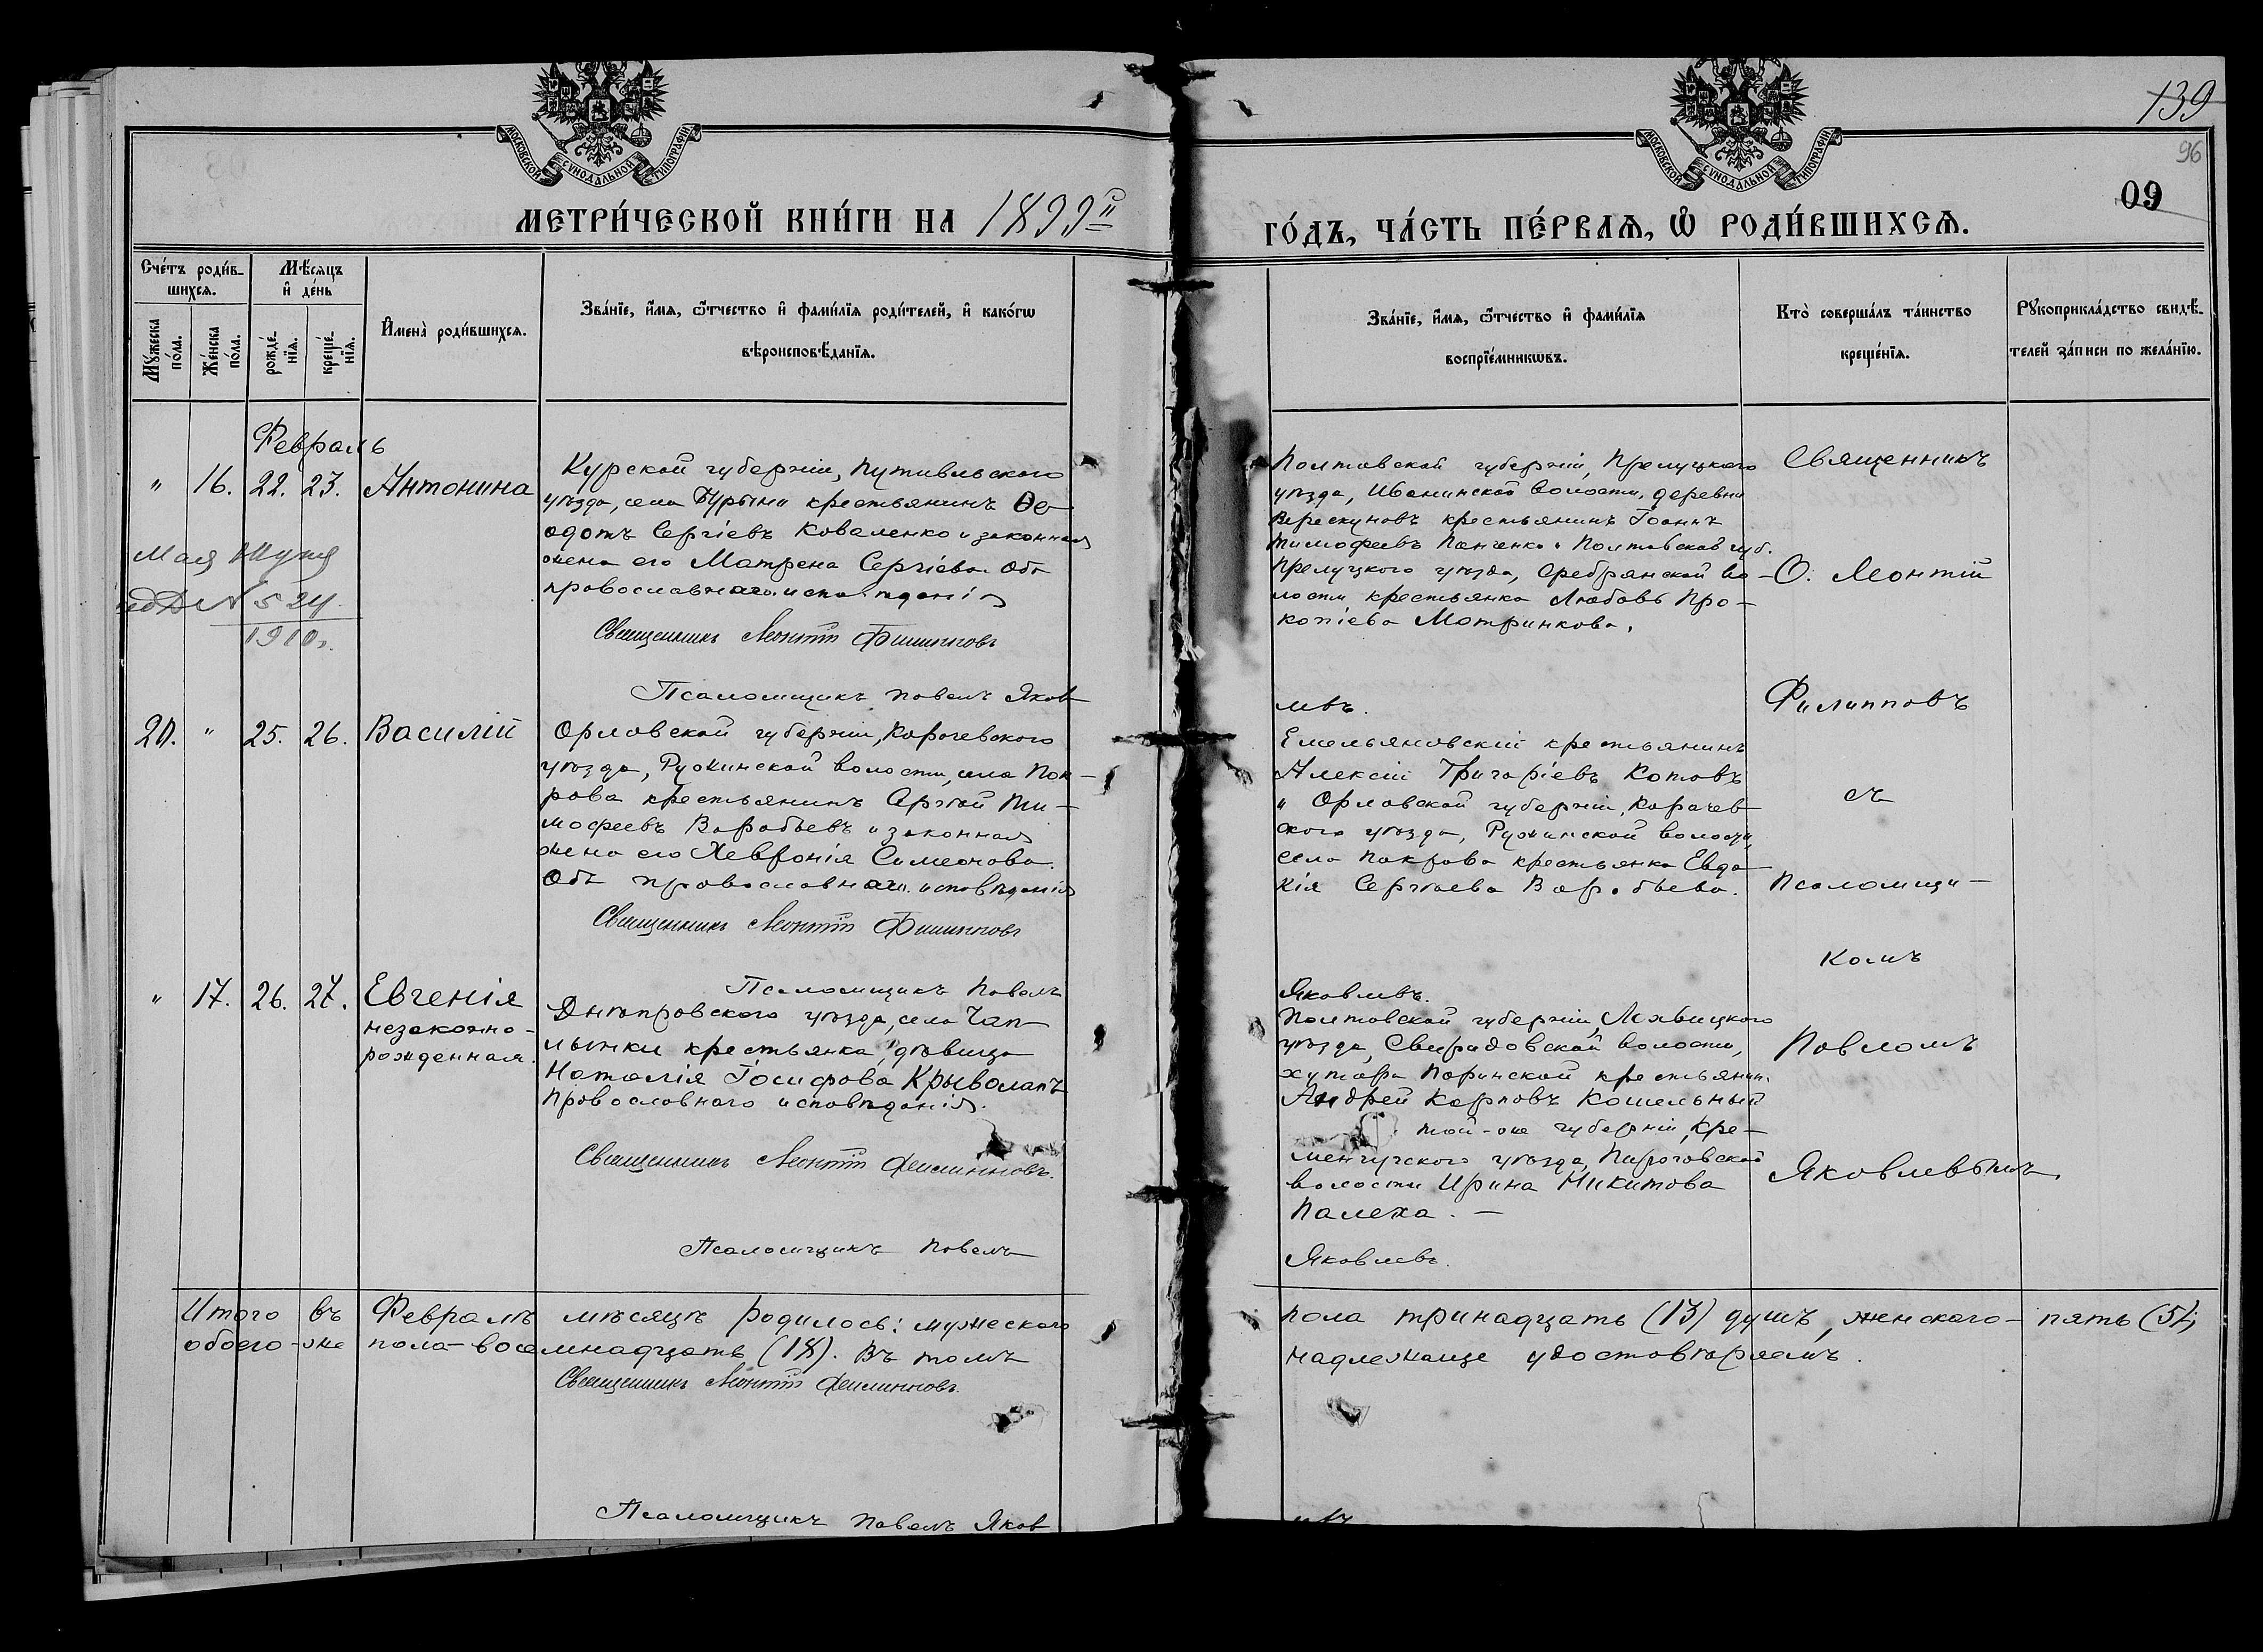 139
96
09
МОСКОВСКОЙ СѴНОДАЛЬНОЙ ТИПОГРАФІИ
МОСКОВСКОЙ СѴНОДАЛЬНОЙ ТИПОГРАФІИ
МЕТРИ́ЧЕСКОЙ КНИ́ГИ НА 1899й
ГО́ДЪ, ЧА́СТЬ ПЕ́РВАѦ, Ѽ РОДИ́ВШИХСѦ.
Сче́тъ роди́в-
шихсѧ.
Мѣ́сѧцъ
и҆ де́нь
Мꙋ́жеска по́ла.
Же́нска по́ла.
рожде́нїѧ.
креще́нїѧ.
И҆мена̀ роди́вшихсѧ.
Зва́нїе, и҆́мѧ, ѻ҆́тчество и҆ фами́лїѧ роди́телей, и҆ како́гѡ
вѣроисповѣ́данїѧ.
Зва́нїе, и҆́мѧ, ѻ҆́тчество и҆ фами́лїѧ
воспрїе́мникѡвъ.
Кто̀ соверша́лъ та́инство
креще́нїѧ.
Рꙋкоприкла́дство свидѣ́-
телей за́писи по жела́нїю.
Февраль
" 16. 22. 23. Антонина
Курской губерніи, Путивльскаго
уѣзда, села Бурыни крестьянинъ Ѳе-
одотъ Сергіевъ Коваленко и законная
жена его Матрена Сергіева. Оба
православнаго исповѣданія
Священникъ Леонтій Филипповъ
Псаломщикъ Павелъ Яков
№ 524
1910г.
Полтавской губерніи, Прелуцкаго
уѣзда, Иванинской волости, деревни
крестьянинъ Іоаннъ
Тимофеевъ Панченко и Полтавской губ.
Прелуцкаго уѣзда, Сребрянской во-
лости крестьянка Любовь Про-
копіева Матринкова.
левъ.
Священникъ
О. Леонтій
Филипповъ
съ
Псаломщи-
комъ
Павломъ
Яковлевымъ.
20. " 25. 26. Василій
Орловской губерніи, Карачевскаго
уѣзда, Ружинской волости, села Пок-
рова крестьянинъ Сергѣй Ти-
мофеевъ Воробьевъ и законная
жена его Хевронія Симеонова.
Оба православнаго исповѣданія
Священникъ Леонтій Филипповъ
Псаломщикъ Павелъ
Емельяновскій крестьянинъ
Алексій Григоріевъ Котовъ
и Орловской губерніи, Карачев
скаго уѣзда, Ружинской волости,
села Покрова крестьянка Евдо
кія Сергѣева Воробьева.
Яковлевъ.
" 17. 26. 27. Евгенія
незаконно-
рожденная.
Днѣпровскаго уѣзда, села Чап
лынки крестьянка, дѣвица
Наталія Іосифова Крыволапъ
Православнаго исповѣданія.
Священникъ Леонтій Филипповъ.
Псаломщикъ Павелъ
Полтавской губерніи, Лохвицкаго
уѣзда, Свиридовской волости,
хутора Паринской крестьянин.
Андрей Карповъ Кошельный
той-же губерніи, Кре-
менчугскаго уѣзда, Пироговской
волости Ирина Никитова
Палеха. —
Яковлевъ.
Итого въ Февралѣ мѣсяцѣ родилось: мужескаго
пола тринадцать (13) душъ, женскаго- пять (5);
обоего-же пола-восемнадцать (18). Въ томъ
надлежаще удостовѣряемъ.
Священникъ Леонтій Филипповъ.
Псаломщикъ Павелъ Яков
левъ